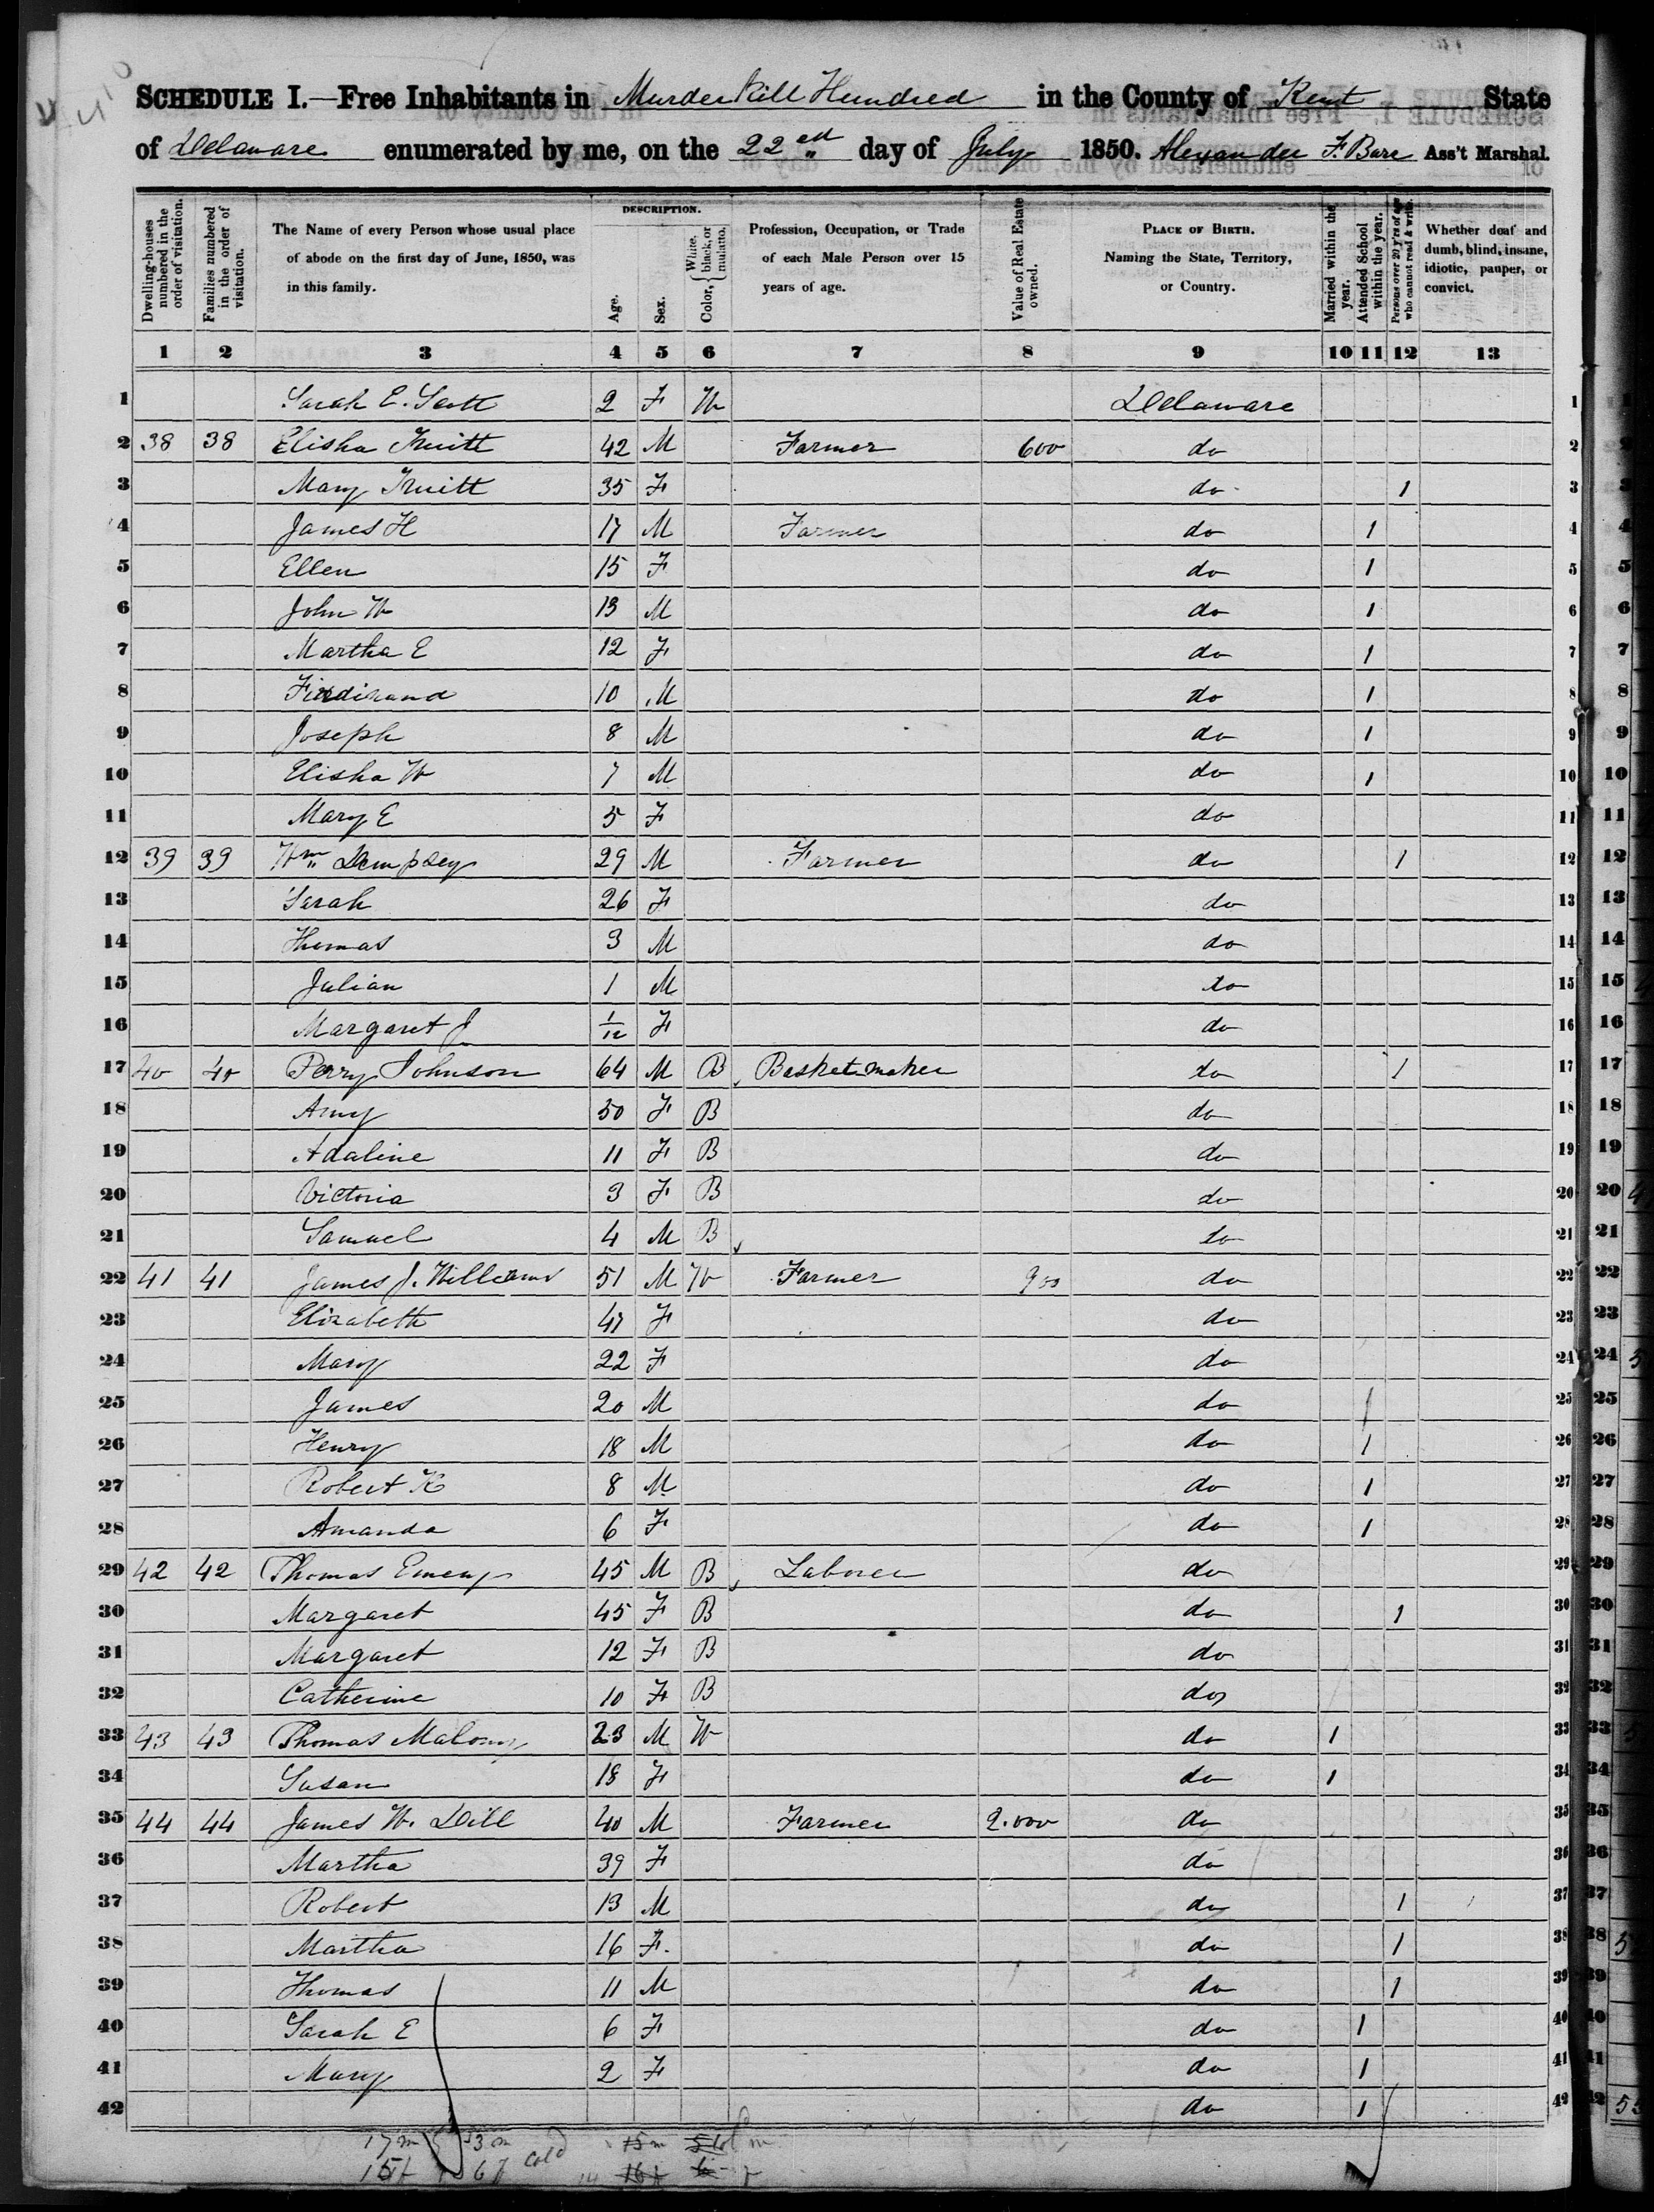 SCHEDULE I.—Free Inhabitants in Murderkill Hundred in the County of Kent State
of Delaware enumerated by me, on the 22nd day of July 1850. Alexander F. Bare Ass't Marshal.
Dwelling-houses numbered in the order of visitation.
Families numbered in the order of visitation.
The Name of every Person whose usual place of abode on the first day of June, 1850, was in this family.
DESCRIPTION.
Age.
Sex.
Color, { White, black, or mulatto.
Profession, Occupation, or Trade of each Male Person over 15 years of age.
Value of Real Estate owned.
PLACE OF BIRTH. Naming the State, Territory, or Country.
Married within the year.
Attended School within the year.
Persons over 20 y'rs of age who cannot read & write.
Whether deaf and dumb, blind, insane, idiotic, pauper, or convict.
1 2 3 4 5 6 7 8 9 10 11 12 13
1 Sarah E. Scott 2 F W Delaware 1
2 38 38 Elisha Truitt 42 M Farmer 600 do 2
3 Mary Truitt 35 F do 1 3
4 James H 17 M Farmer do 1 4
5 Ellen 15 F do 1 5
6 John W 13 M do 1 6
7 Martha E 12 F do 1 7
8 Firdinand 10 M do 1 8
9 Joseph 8 M do 1 9
10 Elisha W 7 M do 1 10
11 Mary E 5 F do 11
12 39 39 Wm Dempsey 29 M Farmer do 1 12
13 Sarah 26 F do 13
14 Thomas 3 M do 14
15 Julian 1 M do 15
16 Margaret J 1/12 F do 16
17 40 40 Perry Johnson 64 M B Basket maker do 1 17
18 Amy 50 F B do 18
19 Adaline 11 F B do 19
20 Victoria 3 F B do 20
21 Samuel 4 M B do 21
22 41 41 James J. Williams 51 M W Farmer 900 do 22
23 Elizabeth 47 F do 23
24 Mary 22 F do 24
25 James 20 M do 1 25
26 Henry 18 M do 1 26
27 Robert K 8 M do 1 27
28 Amanda 6 F do 1 28
29 42 42 Thomas Emery 45 M B Laborer do 29
30 Margaret 45 F B do 1 30
31 Margaret 12 F B do 31
32 Catherine 10 F B do 32
33 43 43 Thomas Malony 23 M W do 1 33
34 Susan 18 F do 1 34
35 44 44 James W. Dill 40 M Farmer 2.000 do 35
36 Martha 39 F do 36
37 Robert 13 M do 1 37
38 Martha 16 F. do 1 38
39 Thomas 11 M do 1 39
40 Sarah E 6 F do 1 40
41 Mary 2 F do 1 41
42 do 1 42